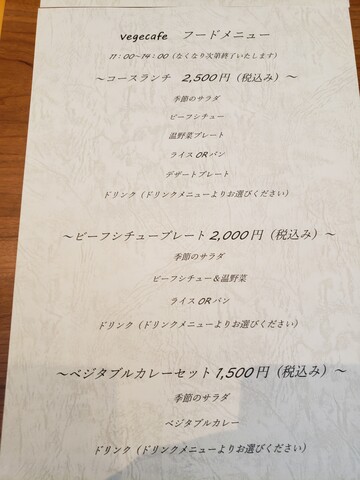 vegecafe　フードメニュー
11：00~14：00（なくなり次第終了いたします）
～コースランチ　2,500円（税込み）～
季節のサラダ
ビーフシチュー
温野菜プレート
ライス ORパン
デザートプレート
ドリンク（ドリンクメニューよりお選びください）
～ビーフシチュープレート 2,000円（税込み）～
季節のサラダ
ビーフシチュー＆温野菜
ライス ORパン
ドリンク（ドリンクメニューよりお選びください）
～ベジタブルカレーセット 1,500円（税込み）～
季節のサラダ
ベジタブルカレー
ドリンク（ドリンクメニューよりお選びください）